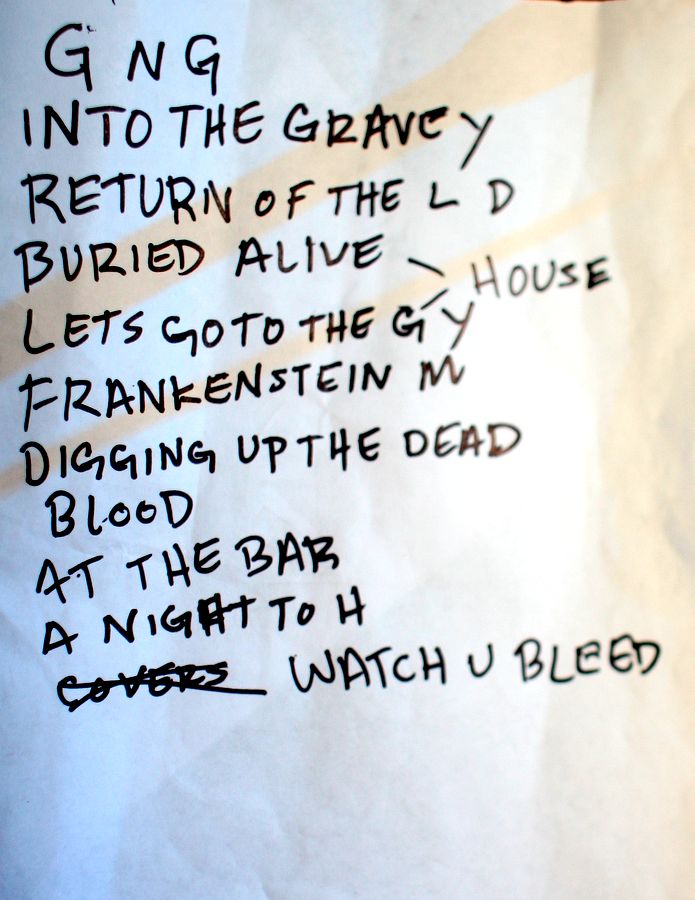 GNG
INTO THE GRAVEY
RETURN OF THE L D
BURIED ALIVE
HOUSE
LETS GO TO THE GY
FRANKENSTEIN M
DIGGING UP THE DEAD
BLOOD
AT THE BAR
A NIGHT TO H
COVERS WATCH U BLEED